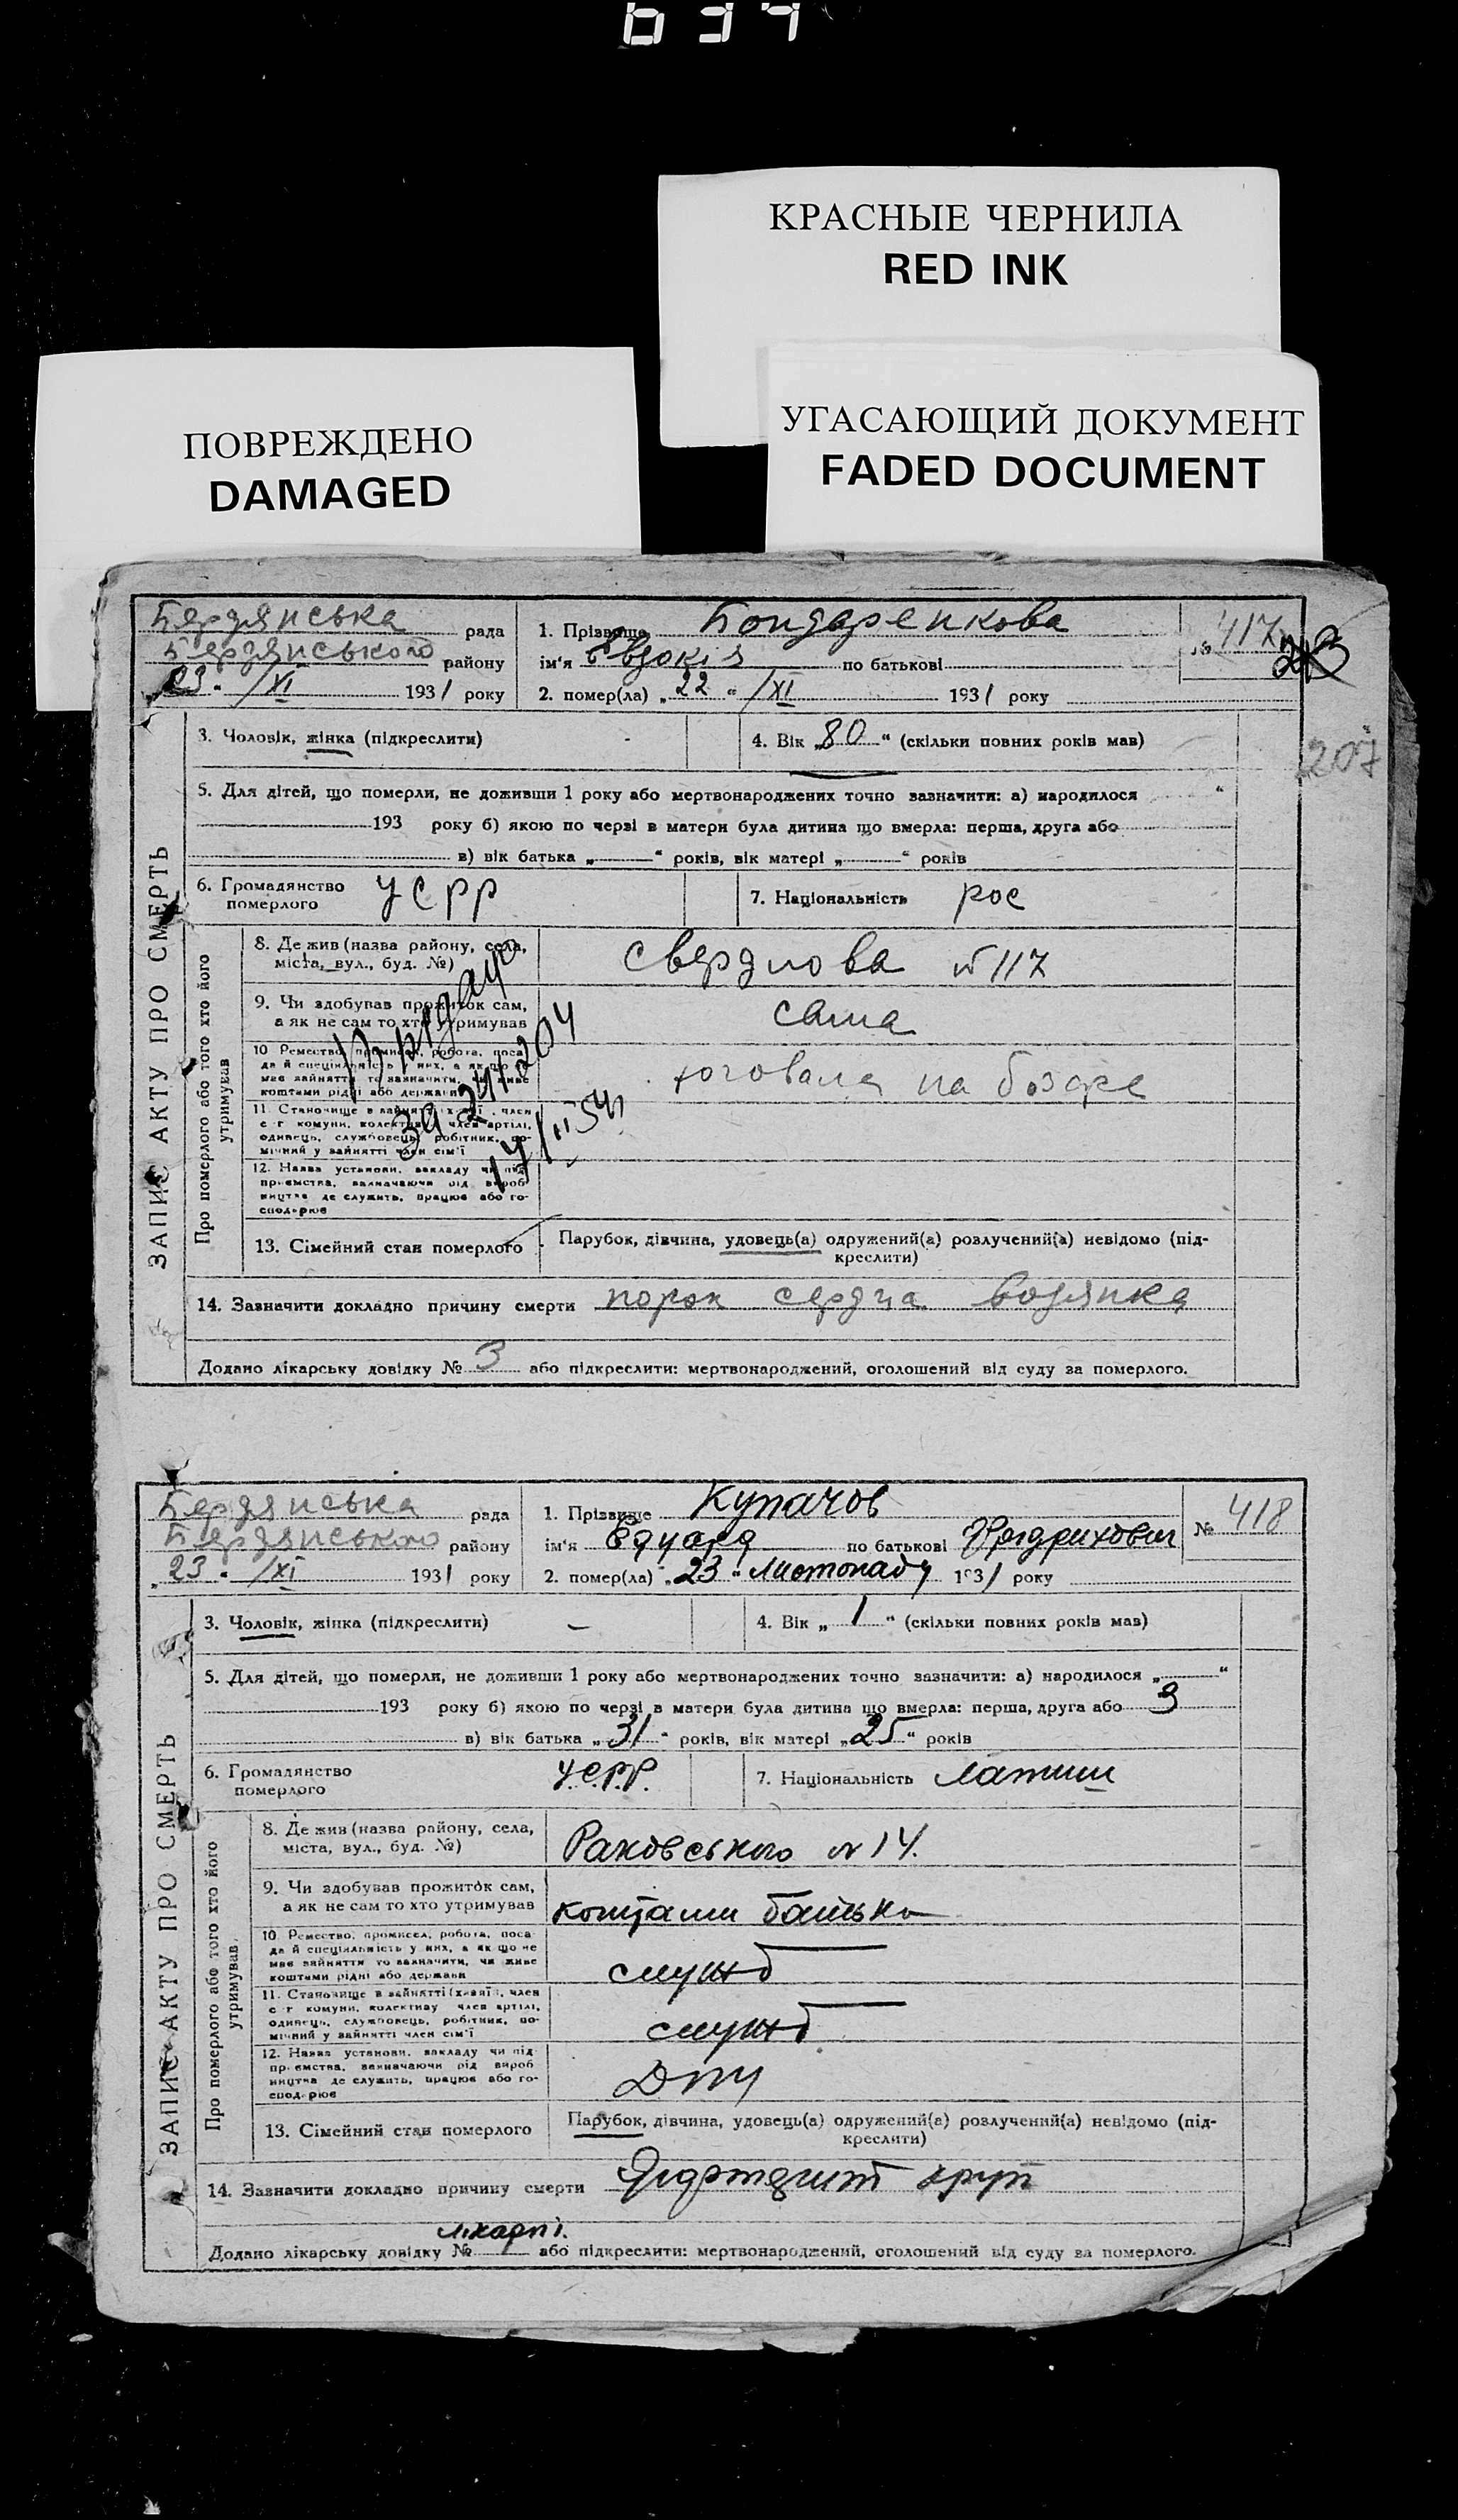 634
КРАСНЫЕ ЧЕРНИЛА
RED INK
ПОВРЕЖДЕНО
DAMAGED
УГАСАЮЩИЙ ДОКУМЕНТ
FADED DOCUMENT
Бердянська рада
Бердянського району
„23“ /XI 1931 року
1. Прізвище Бондаренкова
ім'я Євдокія по батькові
2. помер(ла) „22“ /XI 1931 року
№ 417
207
3. Чоловік, жінка (підкреслити)
4. Вік „80“ (скільки повних років мав)
5. Для дітей, що померли, не доживши 1 року або мертвонароджених точно зазначити: а) народилося “
193 року б) якою по черзі в матери була дитина що вмерла: перша, друга або
в) вік батька „ “ років, вік матері „ “ років
6. Громадянство померлого УСРР
7. Національність рос
ЗАПИС АКТУ ПРО СМЕРТЬ
Про померлого або того хто його утримував
8. Де жив (назва району, села, міста, вул., буд. №) Свердлова № 117
9. Чи здобував прожиток сам, а як не сам то хто утримував сама
10 Ремество, промисел, робота, посада й спеціяльність у них, а як що не має зайняття то зазначити, чи живе коштами рідні або держави
на
11. Становище в зайнятті (хазяї, член с г комуни, колективу член артілі, одинець, службовець, робітник, помічний у зайнятті член сім'ї
12. Назва установи, закладу чи підприємства, зазначаючи рід виробництва де служить, працює або господарює
13. Сімейний стан померлого
Парубок, дівчина, удовець(а) одружений(а) розлучений(а) невідомо (підкреслити)
14. Зазначити докладно причину смерти порок сердца водянка
Додано лікарську довідку № 3 або підкреслити: мертвонароджений, оголошений від суду за померлого.
Бердянська рада
Бердянського району
„23“ /XI 1931 року
1. Прізвище Купачов
ім'я Едуард по батькові
2. помер(ла) „23“ Листопаду 1931 року
№ 418
3. Чоловік, жінка (підкреслити) –
4. Вік „1“ (скільки повних років мав)
5. Для дітей, що померли, не доживши 1 року або мертвонароджених точно зазначити: а) народилося „ “
193 року б) якою по черзі в матери була дитина що вмерла: перша, друга або 3
в) вік батька „31“ років, вік матері „25“ років
6. Громадянство померлого У.С.Р.Р.
7. Національність латиш
ЗАПИС АКТУ ПРО СМЕРТЬ
Про померлого або того хто його утримував
8. Де жив (назва району, села, міста, вул., буд. №) Раковського № 14.
9. Чи здобував прожиток сам, а як не сам то хто утримував коштами батька
10. Ремество, промисел, робота, посада й спеціяльність у них, а як що не має зайняття то зазначити, чи живе коштами рідні або держави служб
11. Становище в зайнятті (хазяї, член с г комуни, колективу член артілі, одинець, службовець, робітник, помічний у зайнятті член сім'ї служб
12. Назва установи, закладу чи підприємства, зазначаючи рід виробництва де служить, працює або господарює ДПУ
13. Сімейний стан померлого
Парубок, дівчина, удовець(а) одружений(а) розлучений(а) невідомо (підкреслити)
14. Зазначити докладно причину смерти круп
лікарні.
Додано лікарську довідку № або підкреслити: мертвонароджений, оголошений від суду за померлого.